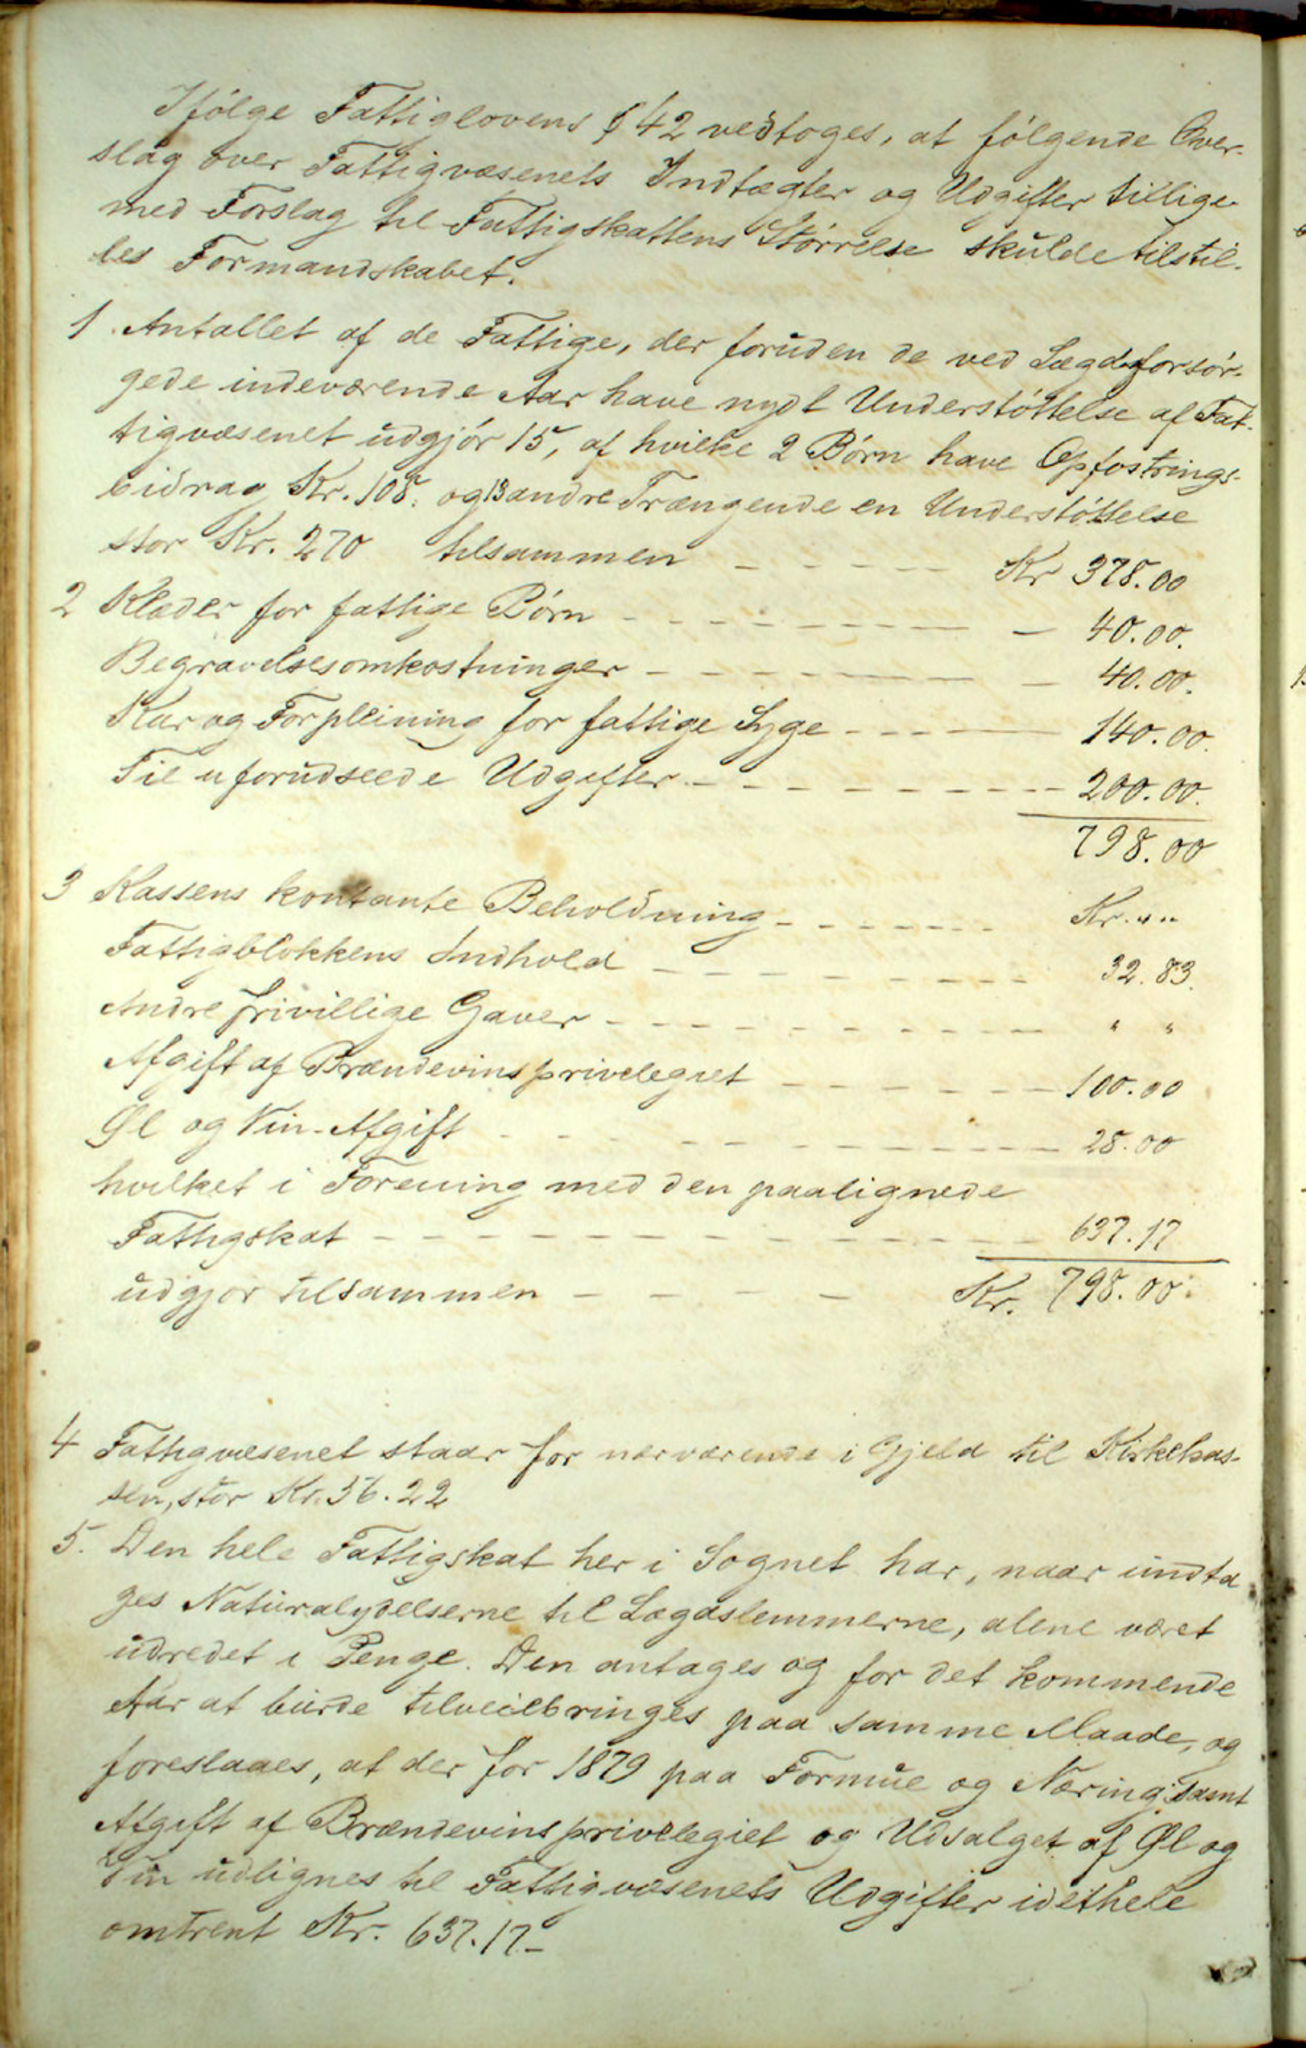 Ifølge Fattiglovens § 42 vedtoges, at følgende Over-
slag over Fattigvæsenets Indtægter og Udgifter tillige-
med Forslag til Fattigskattens Størrelse skulde tilstil-
les Formandskabet.
1. Antallet af de Fattige, der foruden de ved Lægdsforsør-
gede indeværende Aar have nydt Understøttelse af Fat-
tigvæsenet udgjør 15, af hvilke 2 Børn have Opfostrings-
bidrag Kr. 108. og 13 andre Trængende en Understøttelse
stor Kr. 270 tilsammen - - - - - Kr 378.00
2 Klæder for fattige Børn - - - - - - - - 40.00.
Begravelsesomkostninger - - - - - - - 40.00.
Kur og Forpleining for fattige Syge - - - - - 140.00.
Til uforudseede Udgifter - - - - - - - - 200.00.
798.00
3 Kassens kontante Beholdning - - - - - - - Kr. " "
Fattigblokkens Indhold - - - - - - - 32.83.
Andre frivillige Gaver - - - - - - - - " "
Afgift af Brændevinsprivelegiet - - - - - - 100.00
Øl og Vin-Afgift - - - - - - - - 28.00
hvilket i Forening med den paalignede
Fattigskat - - - - - - - - - - 637.17
udgjør tilsammen - - - - Kr. 798.00.
4 Fattigvæsenet staar for nærværende i Gjeld til Kirkekas-
sen, stor Kr. 56.22
5. Den hele Fattigskat her i Sognet har, naar undta
ges Naturalydelserne til Lægdslemmerne, alene været
udredet i Penge. Den antages og for det kommende
Aar at burde tilveiebringes paa samme Maade, og
foreslaaes, at der for 1879 paa Formue og Næring samt
Afgift af Brændevinsprivelegiet og Udsalget af Øl og
Vin udlignes til Fattigvæsenets Udgifter idethele
omtrent Kr. 637.17 -